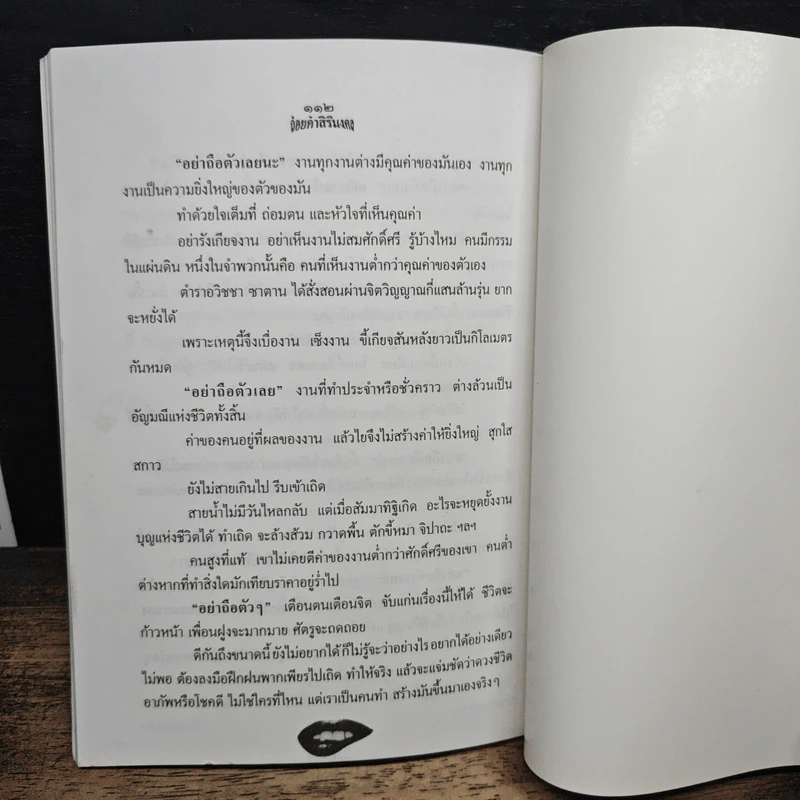 ๑๑๒
อ้อยคำสิรินงคล
"อย่าถือตัวเลยนะ" งานทุกงานต่างมีคุณค่าของมันเอง งานทุก
งานเป็นความยิ่งใหญ่ของตัวของมัน
ทำด้วยใจเต็มที่ ถ่อมตน และหัวใจที่เห็นคุณค่า
อย่ารังเกียจงาน อย่าเห็นงานไม่สมศักดิ์ศรี รู้บ้างไหม คนมีกรรม
ในแผ่นดิน หนึ่งในจำพวกนั้นคือ คนที่เห็นงานต่ำกว่าคุณค่าของตัวเอง
ตำราอวิชชา ซาตาน ได้สั่งสอนผ่านจิตวิญญาณกี่แสนล้านรุ่น ยาก
จะหยั่งได้
เพราะเหตุนี้จึงเบื่องาน เซ็งงาน ขี้เกียจสันหลังยาวเป็นกิโลเมตร
กันหมด
"อย่าถือตัวเลย" งานที่ทำประจำหรือชั่วคราว ต่างล้วนเป็น
อัญมณีแห่งชีวิตทั้งสิ้น
ค่าของคนอยู่ที่ผลของงาน แล้วไยจึงไม่สร้างค่าให้ยิ่งใหญ่ สุกใส
สกาว
ยังไม่สายเกินไป รีบเข้าเถิด
สายน้ำไม่มีวันไหลกลับ แต่เมื่อสัมมาทิฐิเกิด อะไรจะหยุดยั้งงาน
บุญแห่งชีวิตได้ ทำเถิด จะล้างส้วม กวาดพื้น ตักขี้หมา จิปาถะ ฯลฯ
คนสูงที่แท้ เขาไม่เคยตีค่าของงานต่ำกว่าศักดิ์ศรีของเขา คนต่ำ
ต่างหากที่ทำสิ่งใดมักเทียบราคาอยู่ร่ำไป
"อย่าถือตัวๆ" เตือนตนเตือนจิต จับแก่นเรื่องนี้ให้ได้ ชีวิตจะ
ก้าวหน้า เพื่อนฝูงจะมากมาย ศัตรูจะถดถอย
ดีกันถึงขนาดนี้ ยังไม่อยากได้ ก็ไม่รู้จะว่าอย่างไร อยากได้อย่างเดียว
ไม่พอ ต้องลงมือฝึกฝนพากเพียรไปเถิด ทำให้จริง แล้วจะแจ่มชัดว่าดวงชีวิต
อาภัพหรือโชคดี ไม่ใช่ใครที่ไหน แต่เราเป็นคนทำ สร้างมันขึ้นมาเองจริงๆ